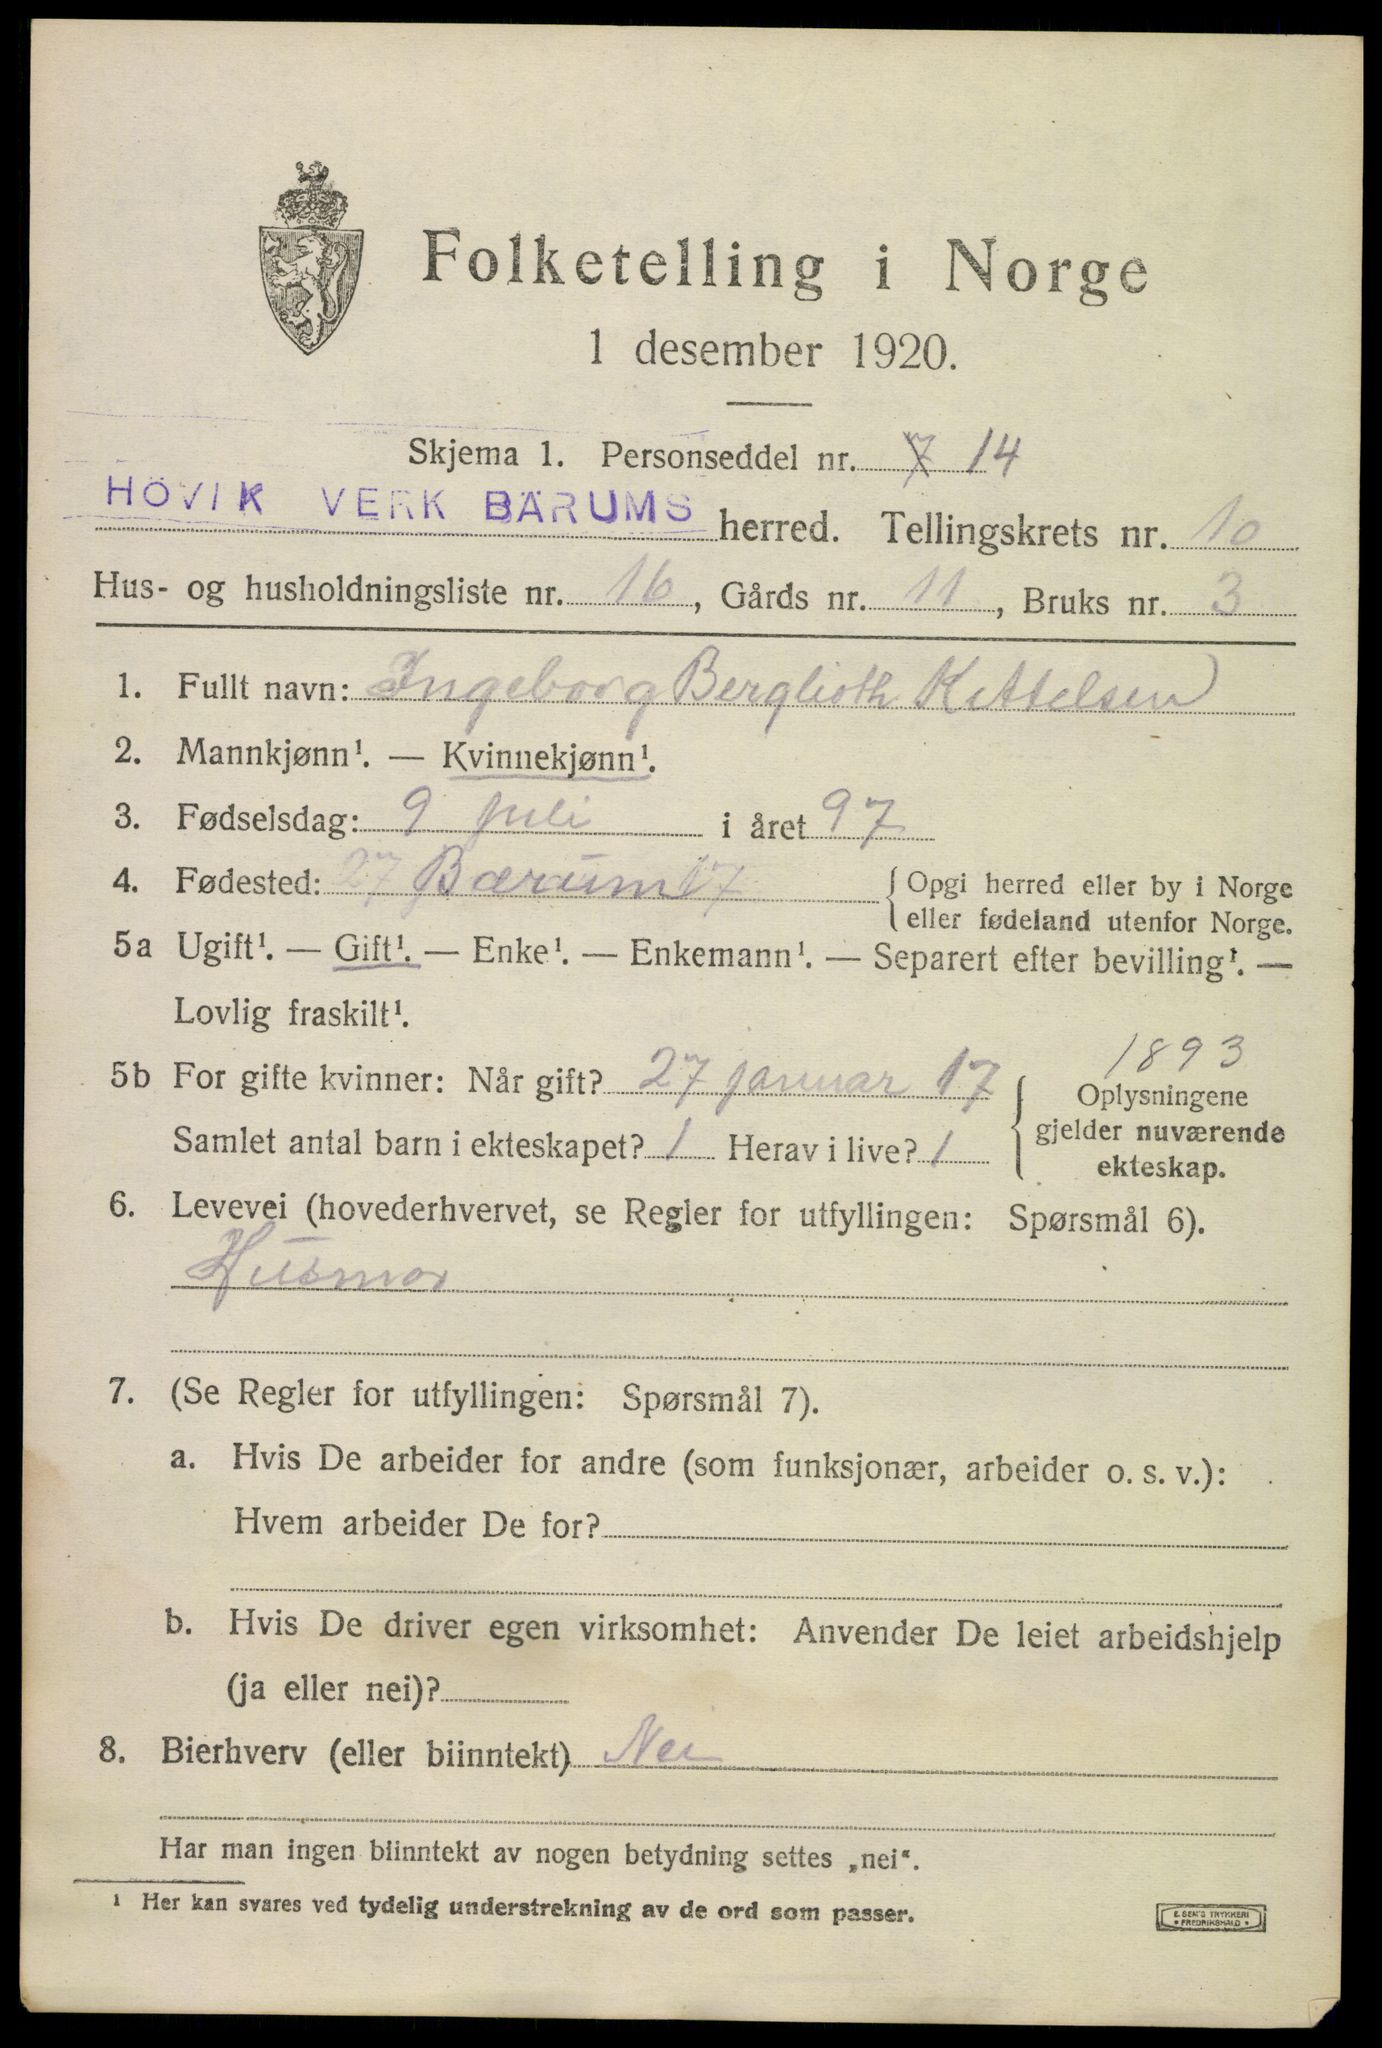 Folketelling i Norge
1 desember 1920.
Skjema 1. Personseddel nr. 7 14
HÖVIK VERK BÆRUMS herred. Tellingskrets nr. 10
Hus- og husholdningsliste nr. 16, Gårds nr. 11, Bruks nr. 3
1. Fullt navn: Ingeborg Berglioth Kittelsen
2. Mannkjønn¹. — Kvinnekjønn¹.
3. Fødselsdag: 9 juli i året 97
4. Fødested: 27 Bærum 17 { Opgi herred eller by i Norge
eller fødeland utenfor Norge.
5a Ugift¹. — Gift¹. — Enke¹. — Enkemann¹. — Separert efter bevilling¹. —
Lovlig fraskilt¹.
1893
5b For gifte kvinner: Når gift? 27 januar 17
Samlet antal barn i ekteskapet? 1 Herav i live? 1
Oplysningene
gjelder nuværende
ekteskap.
6. Levevei (hovederhvervet, se Regler for utfyllingen: Spørsmål 6).
Husmor
7. (Se Regler for utfyllingen: Spørsmål 7).
a. Hvis De arbeider for andre (som funksjonær, arbeider o. s. v.):
Hvem arbeider De for?
b. Hvis De driver egen virksomhet: Anvender De leiet arbeidshjelp
(ja eller nei)?
8. Bierhverv (eller biinntekt) Nei
Har man ingen biinntekt av nogen betydning settes „nei“.
¹ Her kan svares ved tydelig understrekning av de ord som passer.
E. SEM'S TRYKKERI
• FREDRIKSHALD •